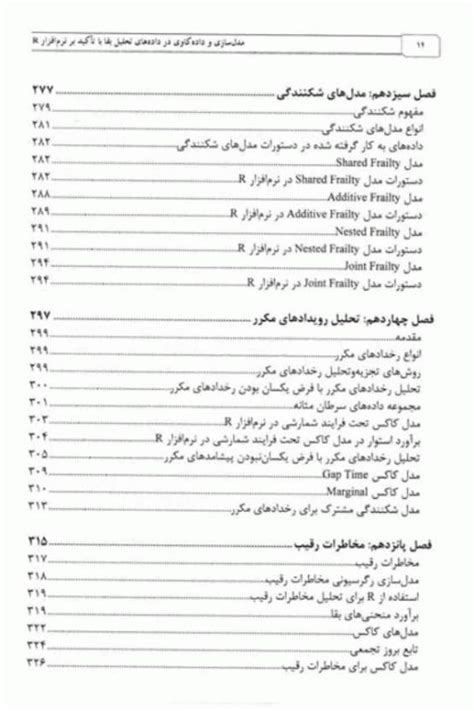 ۱۲ مدل‌سازی و داده‌کاوی در داده‌های تحلیل بقا با تأکید بر نرم‌افزار R
فصل سیزدهم: مدل‌های شکنندگی ۲۷۷
مفهوم شکنندگی ۲۷۹
انواع مدل‌های شکنندگی ۲۸۱
داده‌های به کار گرفته شده در دستورات مدل‌های شکنندگی ۲۸۲
مدل Shared Frailty ۲۸۲
دستورات مدل Shared Frailty در نرم‌افزار R ۲۸۲
مدل Additive Frailty ۲۸۸
دستورات مدل Additive Frailty در نرم‌افزار R ۲۸۹
مدل Nested Frailty ۲۹۱
دستورات مدل Nested Frailty در نرم‌افزار R ۲۹۱
مدل Joint Frailty ۲۹۴
دستورات مدل Joint Frailty در نرم‌افزار R ۲۹۴
فصل چهاردهم: تحلیل رویدادهای مکرر ۲۹۷
مقدمه ۲۹۹
انواع رخدادهای مکرر ۲۹۹
روش‌های تجزیه‌وتحلیل رخدادهای مکرر ۲۹۹
تحلیل رخدادهای مکرر با فرض یکسان بودن رخدادهای مکرر ۳۰۰
مجموعه داده‌های سرطان مثانه ۳۰۱
مدل کاکس تحت فرایند شمارشی در نرم‌افزار R ۳۰۳
برآورد استوار در مدل کاکس تحت فرایند شمارشی در نرم‌افزار R ۳۰۴
تحلیل رخدادهای مکرر با فرض یکسان‌نبودن پیشامدهای مکرر ۳۰۵
مدل کاکس Gap Time ۳۰۹
مدل کاکس Marginal ۳۱۰
مدل شکنندگی مشترک برای رخدادهای مکرر ۳۱۳
فصل پانزدهم: مخاطرات رقیب ۳۱۵
مخاطرات رقیب ۳۱۷
مدل‌سازی رگرسیونی مخاطرات رقیب ۳۱۸
استفاده از R برای تحلیل مخاطرات رقیب ۳۱۹
برآورد منحنی‌های بقا ۳۱۹
مدل‌های کاکس ۳۲۲
تابع بروز تجمعی ۳۲۴
مدل کاکس برای مخاطرات رقیب ۳۲۶